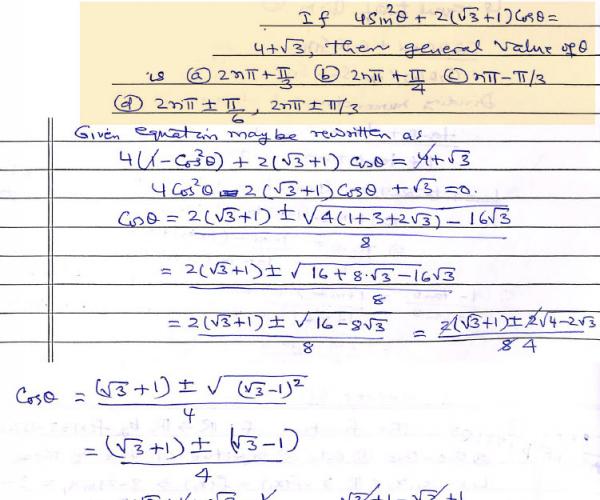 If 4Sin²θ + 2(√3+1)Cosθ =
4+√3, then general value of θ
is (a) 2nπ + π/3 (b) 2nπ + π/4 (c) nπ - π/3
(d) 2nπ ± π/6, 2nπ ± π/3
Given equation may be rewritten as
4(1-Cos²θ) + 2(√3+1) Cosθ = 4+√3
4Cos²θ - 2(√3+1)Cosθ + √3 = 0.
Cosθ = 2(√3+1) ± √4(1+3+2√3) - 16√3 / 8
= 2(√3+1) ± √16+8·√3-16√3 / 8
= 2(√3+1) ± √16-8√3 / 8 = 2(√3+1) ± 2√4-2√3 / 8 4
Cosθ = (√3+1) ± √(√3-1)² / 4
= (√3+1) ± (√3-1) / 4